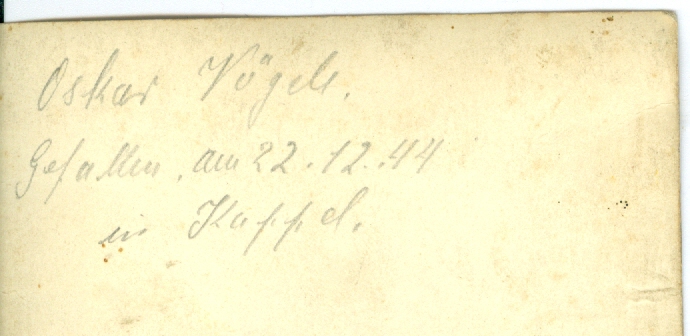 Oskar Vögele.
Gefallen. am 22.12.44
in Kappel.